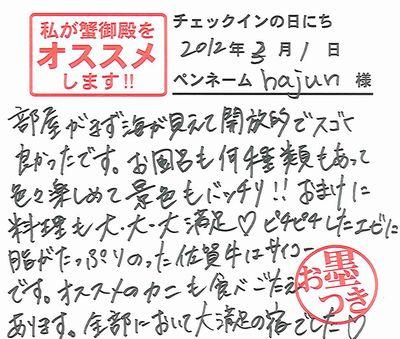 私が蟹御殿を
オススメ
します!!
チェックインの日にち
2012年3月1日
ペンネーム hajun 様
部屋がまず海が見えて開放的でスゴく
良かったです。お風呂も何種類もあって
色々楽しめて景色もバッチリ!! おまけに
料理も大・大・大満足♡ ピチピチしたエビに
脂がたっぷりのった佐賀牛はサイコー
です。オススメのカニも食べごたえ
あります。全部において大満足の宿でした♡
お墨つき